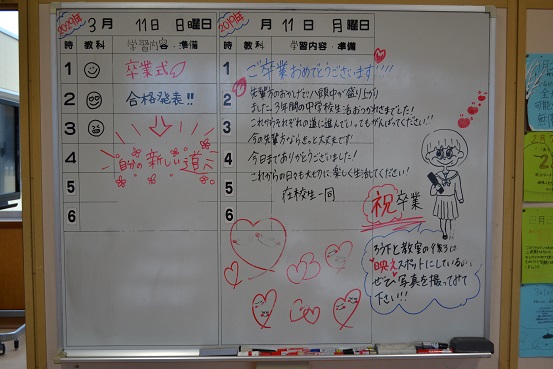 2029年
3月 11日 日曜日
時 教科 学習内容・準備
1 卒業式
2 合格発表!!
3
4 自分の新しい道へ
5
6
2019年
月 11日 月曜日
時 教科 学習内容・準備
1 ご卒業おめでとうございます!!!!
2 先輩方のおかげで八頭中が盛り上がり
ました。3年間の中学校生活おつかれさまでした!
3 これからそれぞれの道に進んでいってもがんばってください!!
今の先輩方ならきっと大丈夫です。
4 今日まで ありがとうございました!
これからの日々も大切に、楽しく生活してください!
5 在校生一同
6
祝 卒業
ろう下と教室の
映えスポットにしているので
ぜひ写真を撮ってみて
下さい!!!